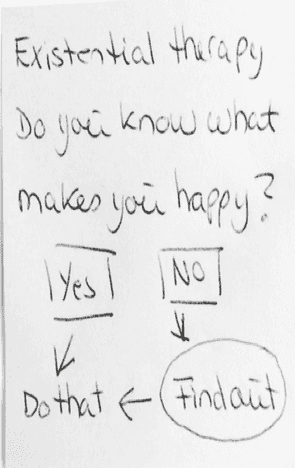 Existential therapy
Do you know what
makes you happy?
Yes No
Do that ← Find out